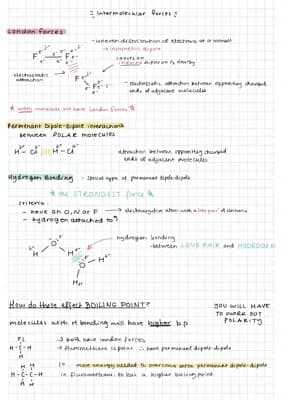 : Intermolecular forces :
London forces
- uneven distribution of electrons at a moment
→ instantaneous dipole
F - F
causes an induced dipole on F₂ nearby
electrostatic attraction
F - F
- electrostatic attraction between oppositely charged
ends of adjacent molecules
* every molecule will have London forces *
Permenant Dipole-Dipole interactions
between POLAR molecules
H - Cl H - Cl
attraction between oppositely charged
ends of adjacent molecules
Hydrogen Bonding - special type of permenant dipole-dipole
* the STRONGEST force *
criteria:
- have an O, N or F → electronegative atom with a lone pair of electrons
- hydrogen attached to ↑
hydrogen bonding
- between LONE PAIR and HYDROGEN
H O H
O - H
H
How do these effect BOILING POINT?
YOU WILL HAVE
TO WORK OUT
POLARITY
molecules with H bonding will have higher b.p
F
H - C - H
H
→ both have london forces
→ fluoromethane is polar ∴ have permenant dipole-dipole
H H
H - C - C - H
H H
more energy needed to overcome permenant dipole-dipole
in fluoromethane so has a higher boiling point